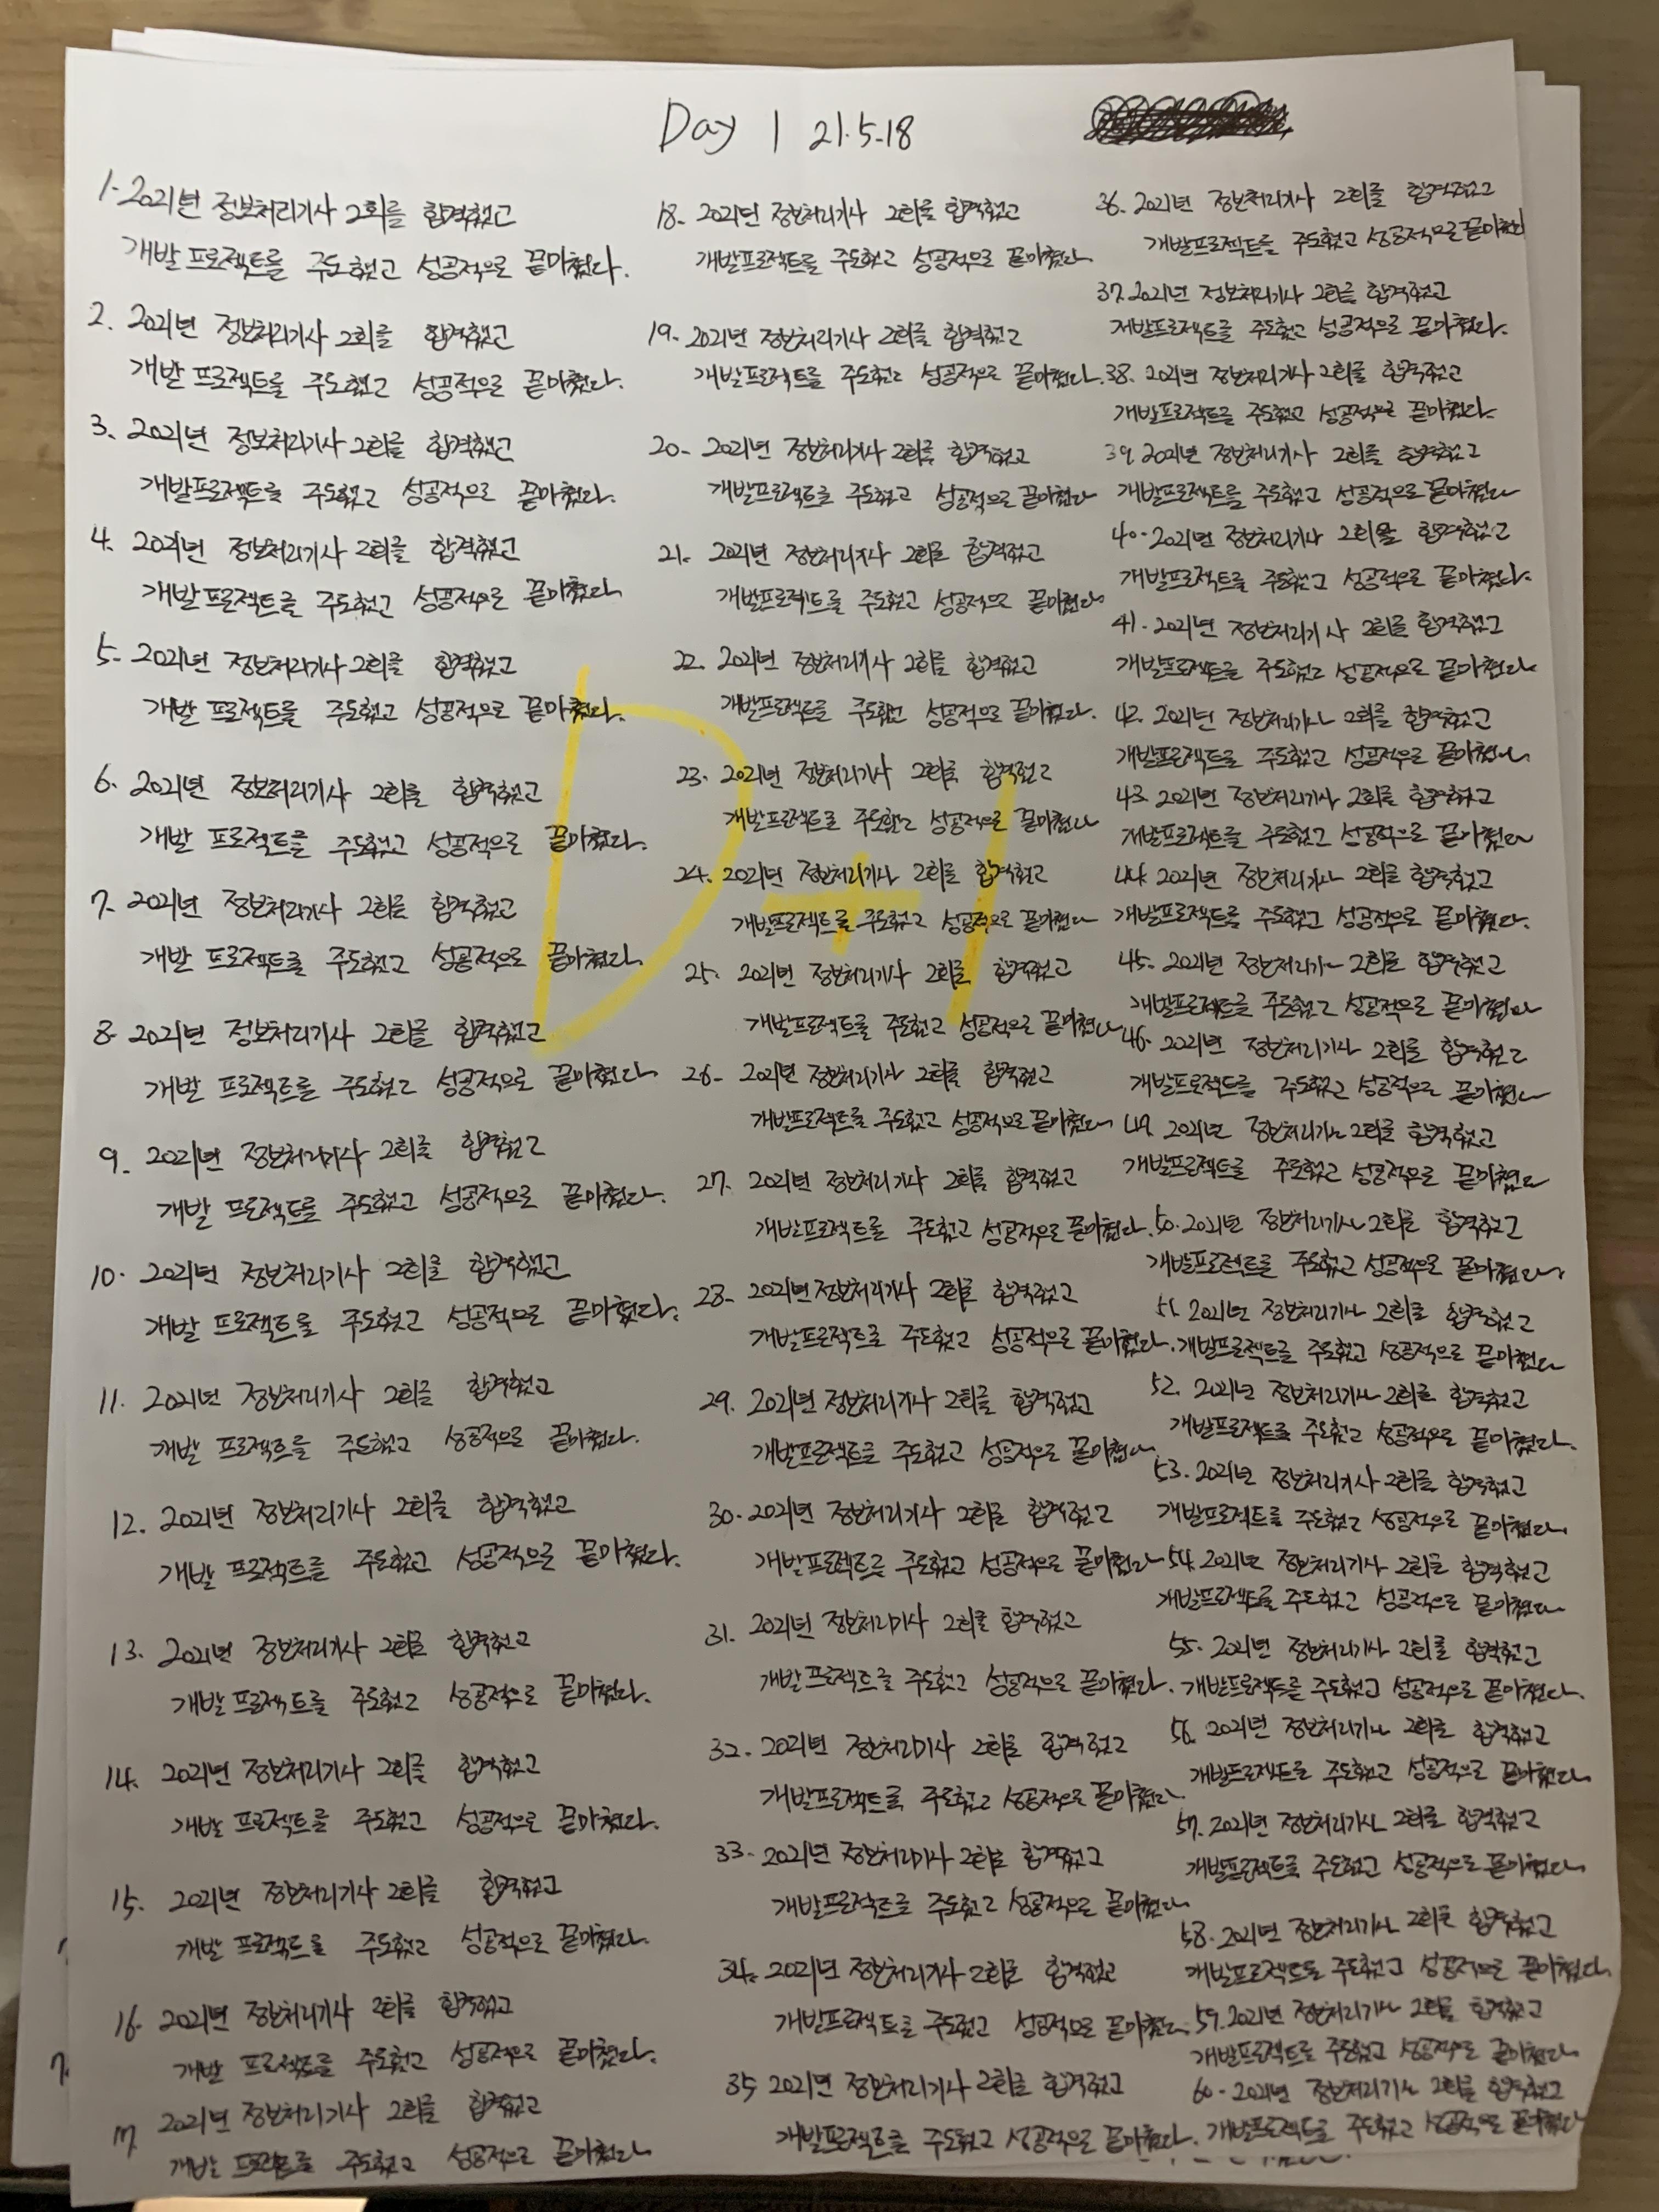 Day 1 21.5.18
1. 2021년 정보처리기사 2회를 합격했고
개발 프로젝트를 주도했고 성공적으로 끝마쳤다.
2. 2021년 정보처리기사 2회를 합격했고
개발 프로젝트를 주도했고 성공적으로 끝마쳤다.
3. 2021년 정보처리기사 2회를 합격했고
개발프로젝트를 주도했고 성공적으로 끝마쳤다.
4. 2021년 정보처리기사 2회를 합격했고
개발프로젝트를 주도했고 성공적으로 끝마쳤다
5. 2021년 정보처리기사 2회를 합격했고
개발 프로젝트를 주도했고 성공적으로 끝마쳤다.
6. 2021년 정보처리기사 2회를 합격했고
개발 프로젝트를 주도했고 성공적으로 끝마쳤다.
7. 2021년 정보처리기사 2회를 합격했고
개발 프로젝트를 주도했고 성공적으로 끝마쳤다.
8. 2021년 정보처리기사 2회를 합격했고
개발 프로젝트를 주도했고 성공적으로 끝마쳤다
9. 2021년 정보처리기사 2회를 합격했고
개발 프로젝트를 주도했고 성공적으로 끝마쳤다.
10. 2021년 정보처리기사 2회를 합격했고
개발 프로젝트를 주도했고 성공적으로 끝마쳤다.
11. 2021년 정보처리기사 2회를 합격했고
개발 프로젝트를 주도했고 성공적으로 끝마쳤다.
12. 2021년 정보처리기사 2회를 합격했고
개발 프로젝트를 주도했고 성공적으로 끝마쳤다.
13. 2021년 정보처리기사 2회를 합격했고
개발 프로젝트를 주도했고 성공적으로 끝마쳤다.
14. 2021년 정보처리기사 2회를 합격했고
개발 프로젝트를 주도했고 성공적으로 끝마쳤다.
15. 2021년 정보처리기사 2회를 합격했고
개발 프로젝트를 주도했고 성공적으로 끝마쳤다.
16. 2021년 정보처리기사 2회를 합격했고
개발 프로젝트를 주도했고 성공적으로 끝마쳤다.
17. 2021년 정보처리기사 2회를 합격했고
개발 프로젝트를 주도했고 성공적으로 끝마쳤다
18. 2021년 정보처리기사 2회를 합격했고
개발프로젝트를 주도했고 성공적으로 끝마쳤다
19. 2021년 정보처리기사 2회를 합격했고
개발프로젝트를 주도했고 성공적으로 끝마쳤다.
20. 2021년 정보처리기사 2회를 합격했고
개발프로젝트를 주도했고 성공적으로 끝마쳤다
21. 2021년 정보처리기사 2회를 합격했고
개발프로젝트를 주도했고 성공적으로 끝마쳤다
22. 2021년 정보처리기사 2회를 합격했고
개발프로젝트를 주도했고 성공적으로 끝마쳤다.
23. 2021년 정보처리기사 2회를 합격했고
개발프로젝트를 주도했고 성공적으로 끝마쳤다
24. 2021년 정보처리기사 2회를 합격했고
개발프로젝트를 주도했고 성공적으로 끝마쳤다
25. 2021년 정보처리기사 2회를 합격했고
개발프로젝트를 주도했고 성공적으로 끝마쳤다
26. 2021년 정보처리기사 2회를 합격했고
개발프로젝트를 주도했고 성공적으로 끝마쳤다
27. 2021년 정보처리기사 2회를 합격했고
개발프로젝트를 주도했고 성공적으로 끝마쳤다.
28. 2021년 정보처리기사 2회를 합격했고
개발프로젝트를 주도했고 성공적으로 끝마쳤다.
29. 2021년 정보처리기사 2회를 합격했고
개발프로젝트를 주도했고 성공적으로 끝마쳤다
30. 2021년 정보처리기사 2회를 합격했고
개발프로젝트를 주도했고 성공적으로 끝마쳤다
31. 2021년 정보처리기사 2회를 합격했고
개발프로젝트를 주도했고 성공적으로 끝마쳤다.
32. 2021년 정보처리기사 2회를 합격했고
개발프로젝트를 주도했고 성공적으로 끝마쳤다
33. 2021년 정보처리기사 2회를 합격했고
개발프로젝트를 주도했고 성공적으로 끝마쳤다
34. 2021년 정보처리기사 2회를 합격했고
개발프로젝트를 주도했고 성공적으로 끝마쳤다
35 2021년 정보처리기사 2회를 합격했고
개발프로젝트를 주도했고 성공적으로 끝마쳤다.
36. 2021년 정보처리기사 2회를 합격했고
개발프로젝트를 주도했고 성공적으로 끝마쳤다
37. 2021년 정보처리기사 2회를 합격했고
개발프로젝트를 주도했고 성공적으로 끝마쳤다.
38. 2021년 정보처리기사 2회를 합격했고
개발프로젝트를 주도했고 성공적으로 끝마쳤다.
39. 2021년 정보처리기사 2회를 합격했고
개발프로젝트를 주도했고 성공적으로 끝마쳤다
40. 2021년 정보처리기사 2회를 합격했고
개발프로젝트를 주도했고 성공적으로 끝마쳤다.
41. 2021년 정보처리기사 2회를 합격했고
개발프로젝트를 주도했고 성공적으로 끝마쳤다
42. 2021년 정보처리기사 2회를 합격했고
개발프로젝트를 주도했고 성공적으로 끝마쳤다.
43. 2021년 정보처리기사 2회를 합격했고
개발프로젝트를 주도했고 성공적으로 끝마쳤다
44. 2021년 정보처리기사 2회를 합격했고
개발프로젝트를 주도했고 성공적으로 끝마쳤다.
45. 2021년 정보처리기사 2회를 합격했고
개발프로젝트를 주도했고 성공적으로 끝마쳤다
46. 2021년 정보처리기사 2회를 합격했고
개발프로젝트를 주도했고 성공적으로 끝마쳤다
49. 2021년 정보처리기사 2회를 합격했고
개발프로젝트를 주도했고 성공적으로 끝마쳤다
50. 2021년 정보처리기사 2회를 합격했고
개발프로젝트를 주도했고 성공적으로 끝마쳤다.
51. 2021년 정보처리기사 2회를 합격했고
개발프로젝트를 주도했고 성공적으로 끝마쳤다
52. 2021년 정보처리기사 2회를 합격했고
개발프로젝트를 주도했고 성공적으로 끝마쳤다.
53. 2021년 정보처리기사 2회를 합격했고
개발프로젝트를 주도했고 성공적으로 끝마쳤다.
54. 2021년 정보처리기사 2회를 합격했고
개발프로젝트를 주도했고 성공적으로 끝마쳤다
55. 2021년 정보처리기사 2회를 합격했고
개발프로젝트를 주도했고 성공적으로 끝마쳤다.
56. 2021년 정보처리기사 2회를 합격했고
개발프로젝트를 주도했고 성공적으로 끝마쳤다
57. 2021년 정보처리기사 2회를 합격했고
개발프로젝트를 주도했고 성공적으로 끝마쳤다
58. 2021년 정보처리기사 2회를 합격했고
개발프로젝트를 주도했고 성공적으로 끝마쳤다.
59. 2021년 정보처리기사 2회를 합격했고
개발프로젝트를 주도했고 성공적으로 끝마쳤다
60. 2021년 정보처리기사 2회를 합격했고
개발프로젝트를 주도했고 성공적으로 끝마쳤다
D+1